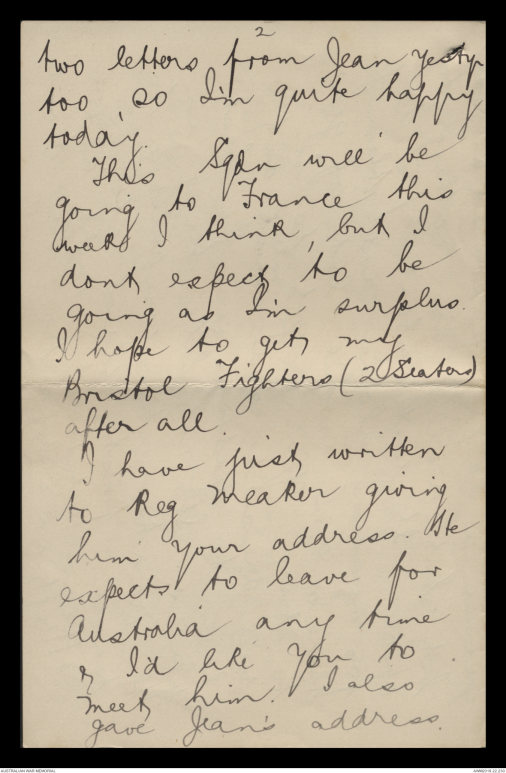 2
two letters from Jean yesty
too, so I'm quite happy
today.
This Sqdn will be
going to France this
week I think, but I
dont expect to be
going as I'm surplus.
I hope to get my
Bristol Fighters (2 Seaters)
after all.
I have just written
to Reg Meaker giving
him your address. He
expects to leave for
Australia any time
& I'd like you to
meet him. I also
gave Jean's address.
AUSTRALIAN WAR MEMORIAL